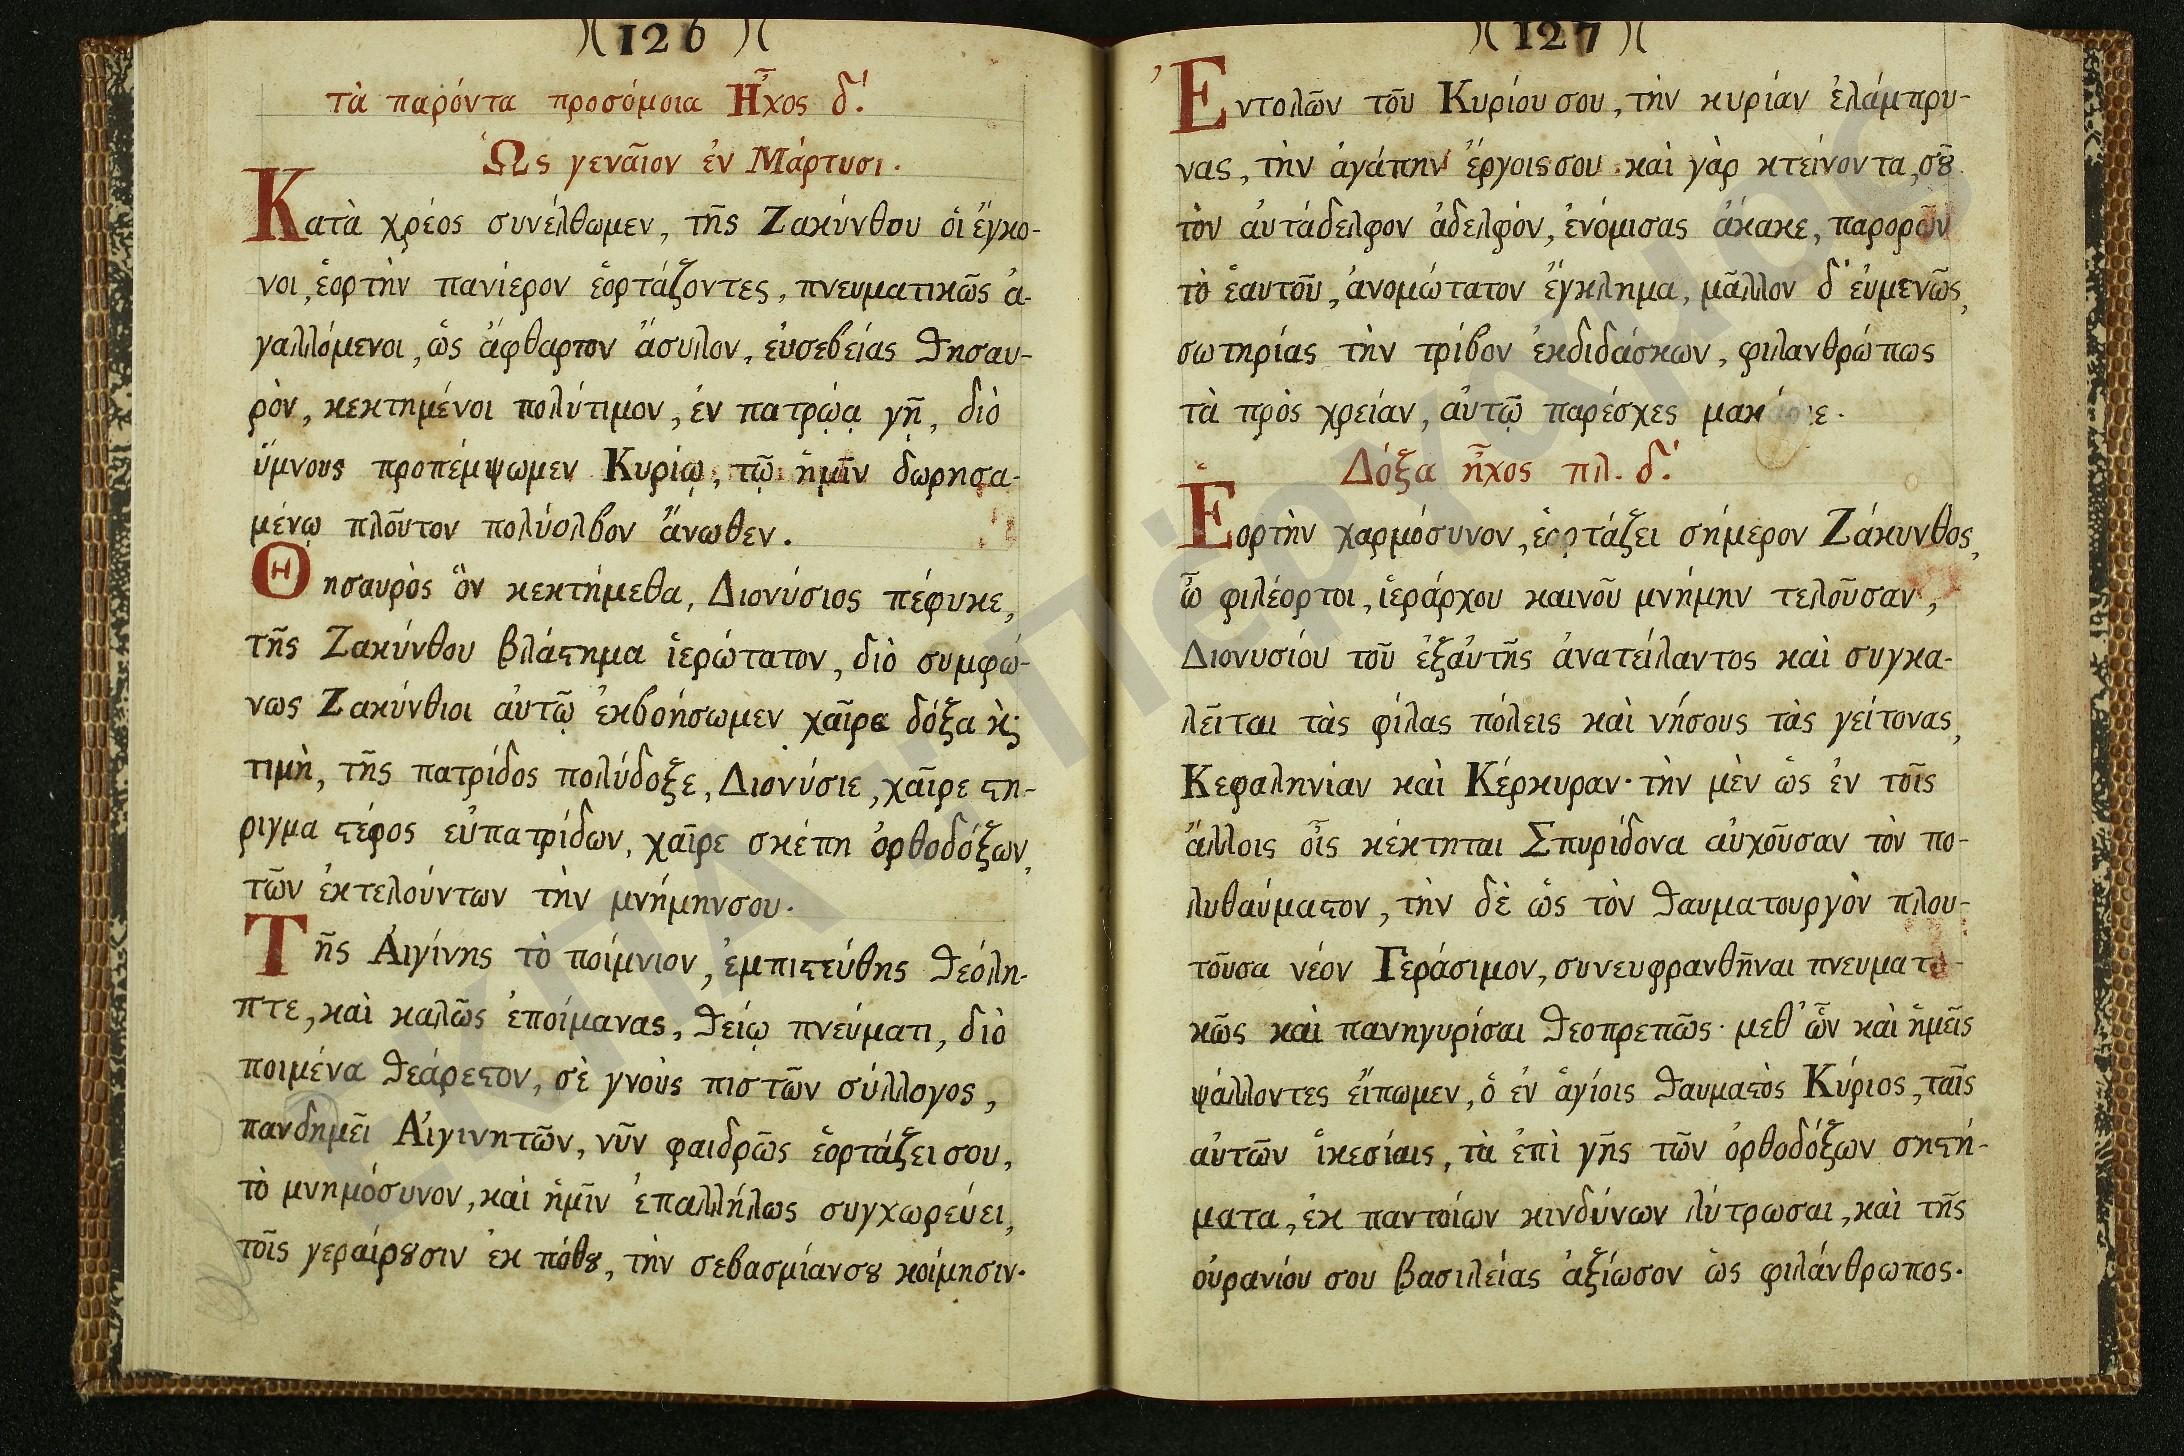 )( 126 )(
τὰ παρόντα προσόμοια Ἦχος δ΄.
Ὡς γεναῖον ἐν Μάρτυσι.
Κατὰ χρέος συνέλθωμεν, τῆς Ζακύνθου οἱ ἔγκο-
νοι, ἑορτὴν πανίερον ἑορτάζοντες, πνευματικῶς ἀ-
γαλλόμενοι, ὡς ἄφθαρτον ἄσυλον, εὐσεβείας θησαυ-
ρὸν, κεκτημένοι πολύτιμον, ἐν πατρῴᾳ γῇ, διὸ
ὕμνους προπέμψωμεν Κυρίῳ, τῷ ἡμῖν δωρησα-
μένῳ πλοῦτον πολύολβον ἄνωθεν.
Θησαυρὸς ὃν κεκτήμεθα, Διονύσιος πέφυκε,
τῆς Ζακύνθου βλάϛημα ἱερώτατον, διὸ συμφώ-
νως Ζακύνθιοι αὐτῷ ἐκβοήσωμεν χαῖρε δόξα ϗ
τιμὴ, τῆς πατρίδος πολύδοξε, Διονύσιε, χαῖρε ϛή-
ριγμα ϛέφος εὐπατρίδων, χαῖρε σκέπη ὀρθοδόξων,
τῶν ἐκτελούντων τὴν μνήμηνσου.
Τῆς Αἰγίνης τὸ ποίμνιον, ἐμπιϛεύθης θεόλη-
πτε, καὶ καλῶς ἐποίμανας, θείῳ πνεύματι, διὸ
ποιμένα θεάρεϛον, σὲ γνοὺς πιστῶν σύλλογος,
πανδημεῖ Αἰγινητῶν, νῦν φαιδρῶς ἑορτάζει σου,
τὸ μνημόσυνον, καὶ ἡμῖν ἐπαλλήλως συγχωρεύει,
τοῖς γεραίρȣσιν ἐκ πόθȣ, τὴν σεβασμίανσȣ κοίμησιν.
)( 127 )(
Ἐντολῶν τοῦ Κυρίου σου, τὴν κυρίαν ἐλάμπρυ-
νας, τὴν ἀγάπην ἔργοις σου . καὶ γὰρ κτείνοντα, σȣ͂
τὸν αὐτάδελφον ἀδελφόν, ἐνόμισας ἄκακε, παρορῶν
τὸ ἑαυτοῦ, ἀνομώτατον ἔγκλημα, μᾶλλον δ' εὐμενῶς,
σωτηρίας τὴν τρίβον ἐκδιδάσκων, φιλανθρώπως
τὰ πρὸς χρείαν, αὐτῷ παρέσχες μακάριε.
Δόξα ἦχος πλ. δ΄.
Ἑορτὴν χαρμόσυνον, ἑορτάζει σήμερον Ζάκυνθος,
ὦ φιλέορτοι, ἱεράρχου καινοῦ μνήμην τελοῦσαν,
Διονυσίου τοῦ ἐξαὐτῆς ἀνατείλαντος καὶ συγκα-
λεῖται τὰς φίλας πόλεις καὶ νήσους τὰς γείτονας,
Κεφαληνίαν καὶ Κέρκυραν· τὴν μὲν ὡς ἐν τοῖς
ἄλλοις οἷς κέκτηται Σπυρίδονα αὐχοῦσαν τὸν πο-
λυθαύμαϛον, τὴν δὲ ὡς τὸν θαυματουργὸν πλου-
τοῦσα νέον Γεράσιμον, συνευφρανθῆναι πνευματι-
κῶς καὶ πανηγυρίσαι θεοπρεπῶς· μεθ' ὧν καὶ ἡμεῖς
ψάλλοντες εἴπωμεν, ὁ ἐν ἁγίοις θαυμαϛὸς Κύριος, ταῖς
αὐτῶν ἱκεσίαις, τὰ ἐπὶ γῆς τῶν ὀρθοδόξων σηϛή-
ματα, ἐκ παντοίων κινδύνων λύτρωσαι, καὶ τῆς
οὐρανίου σου βασιλείας ἀξίωσον ὡς φιλάνθρωπος.